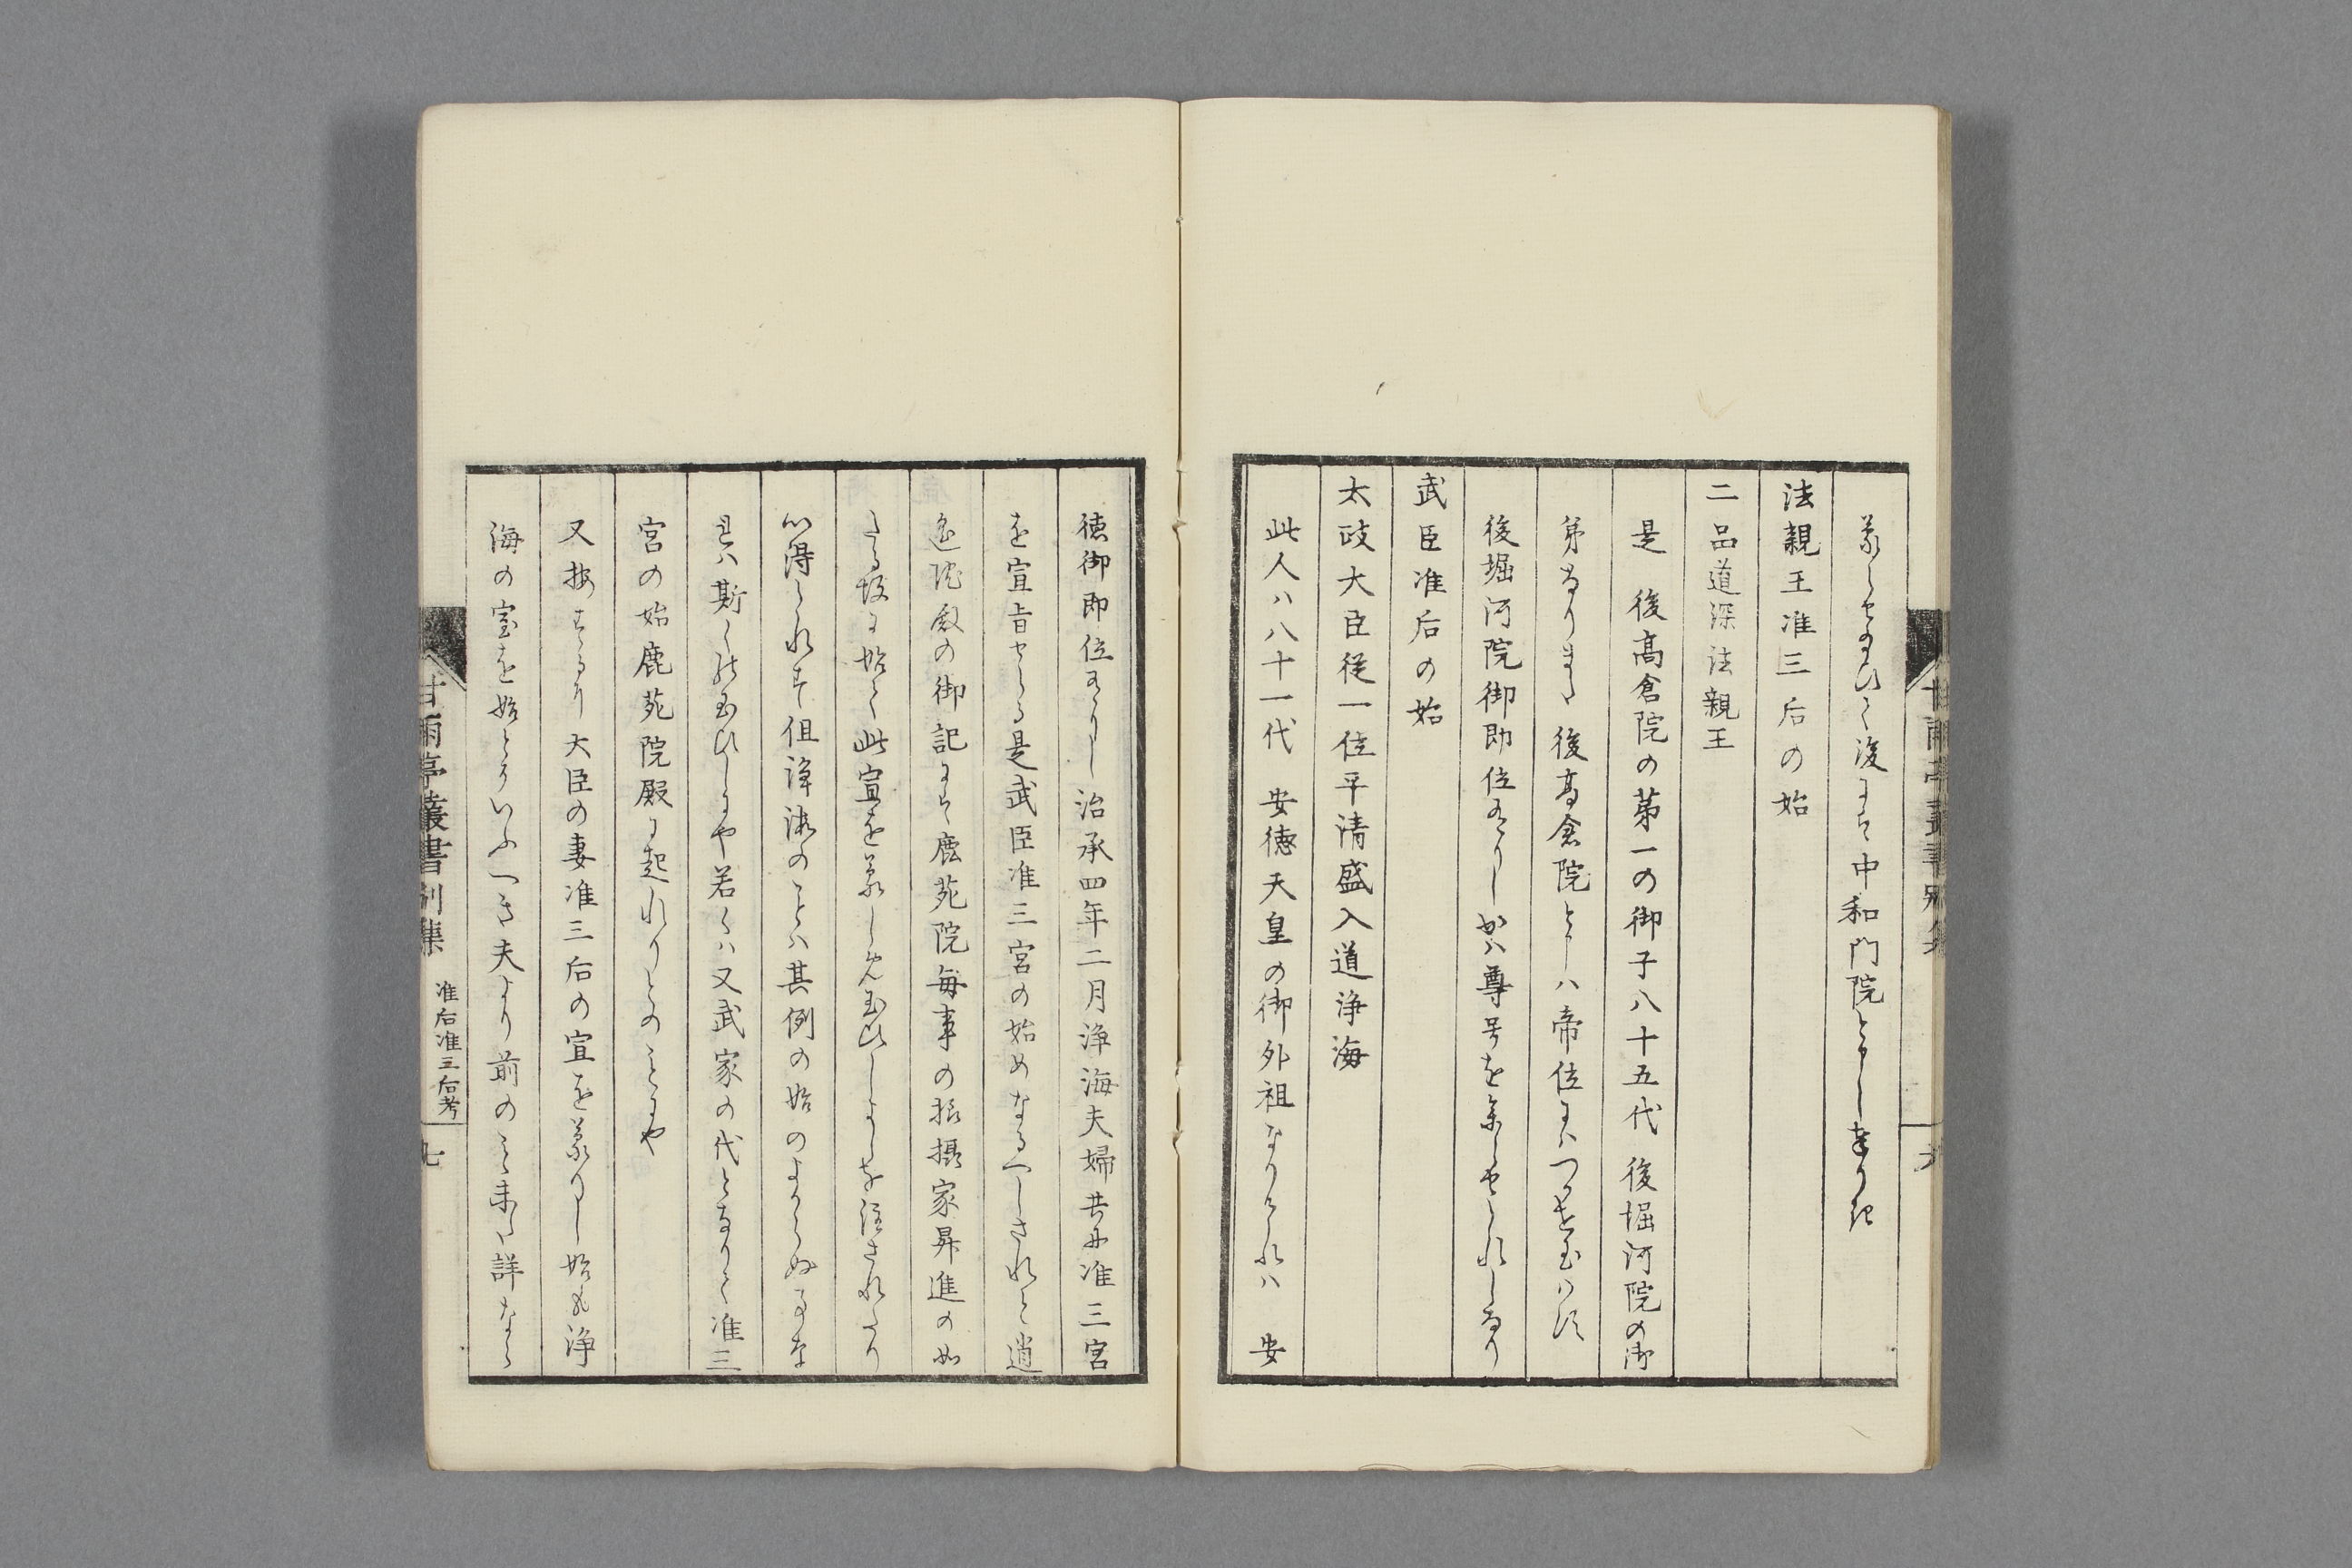 蒙らせ給ひて後にそ中和門院とそ申し奉りき
法親王准三后の始
二品道深法親王
是　後高倉院の第一の御子八十五代　後堀河院の御
弟なりき　後高倉院と申ハ帝位にハつかせ玉はす
後堀河院御即位有りしかハ尊号を参らせられしなり
武臣准后の始
太政大臣従一位平清盛入道浄海
此人ハ八十一代　安徳天皇の御外祖なりけれハ　安
徳御即位有りし治承四年二月浄海夫婦共に准三宮
を宣旨せらる是武臣准三宮の始めなるへしされと逍
遥院殿の御記にそ鹿苑院毎事の振摂家昇進の如
くなる故に始て此宣を蒙しめ玉ひしよしを注されたり
心得られす但浄海のことハ其例の始のよからぬ事な
れハ斯くハ玉ひしにや若くハ又武家の代となりて准三
宮の始鹿苑院殿に起れりとのことにや
又按するに大臣の妻准三后の宣を蒙りし始も浄
海の室を始とそいふへき夫より前のこと未た詳なら
甘雨亭叢書別集　准后准三后考　七